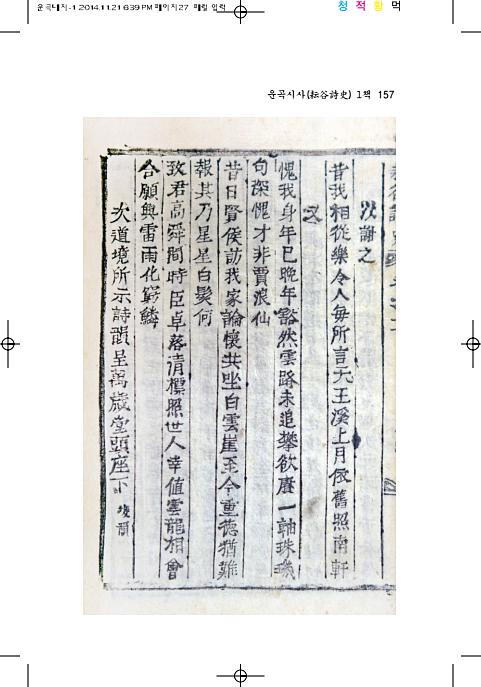 운곡내지-1 2014.11.21 6:39 PM 페이지27 매킬 입력
청 적 황 먹
운곡시사(耘谷詩史) 1책 157
次謝之
昔我相從樂令人每所言大王溪上月依舊照南軒
又
愧我身年已晚年豁然雲路未追攀欲賡一軸珠璣
句深愧才非賈浪仙
昔日賢侯訪我家論懷共坐白雲崖至今重德猶難
報其乃星星白髮何
致君高舜間時臣卓落清標照世人幸值雲龍相會
合願興雷雨化窮鱗
次道境所示詩韻呈萬歲堂頭座下